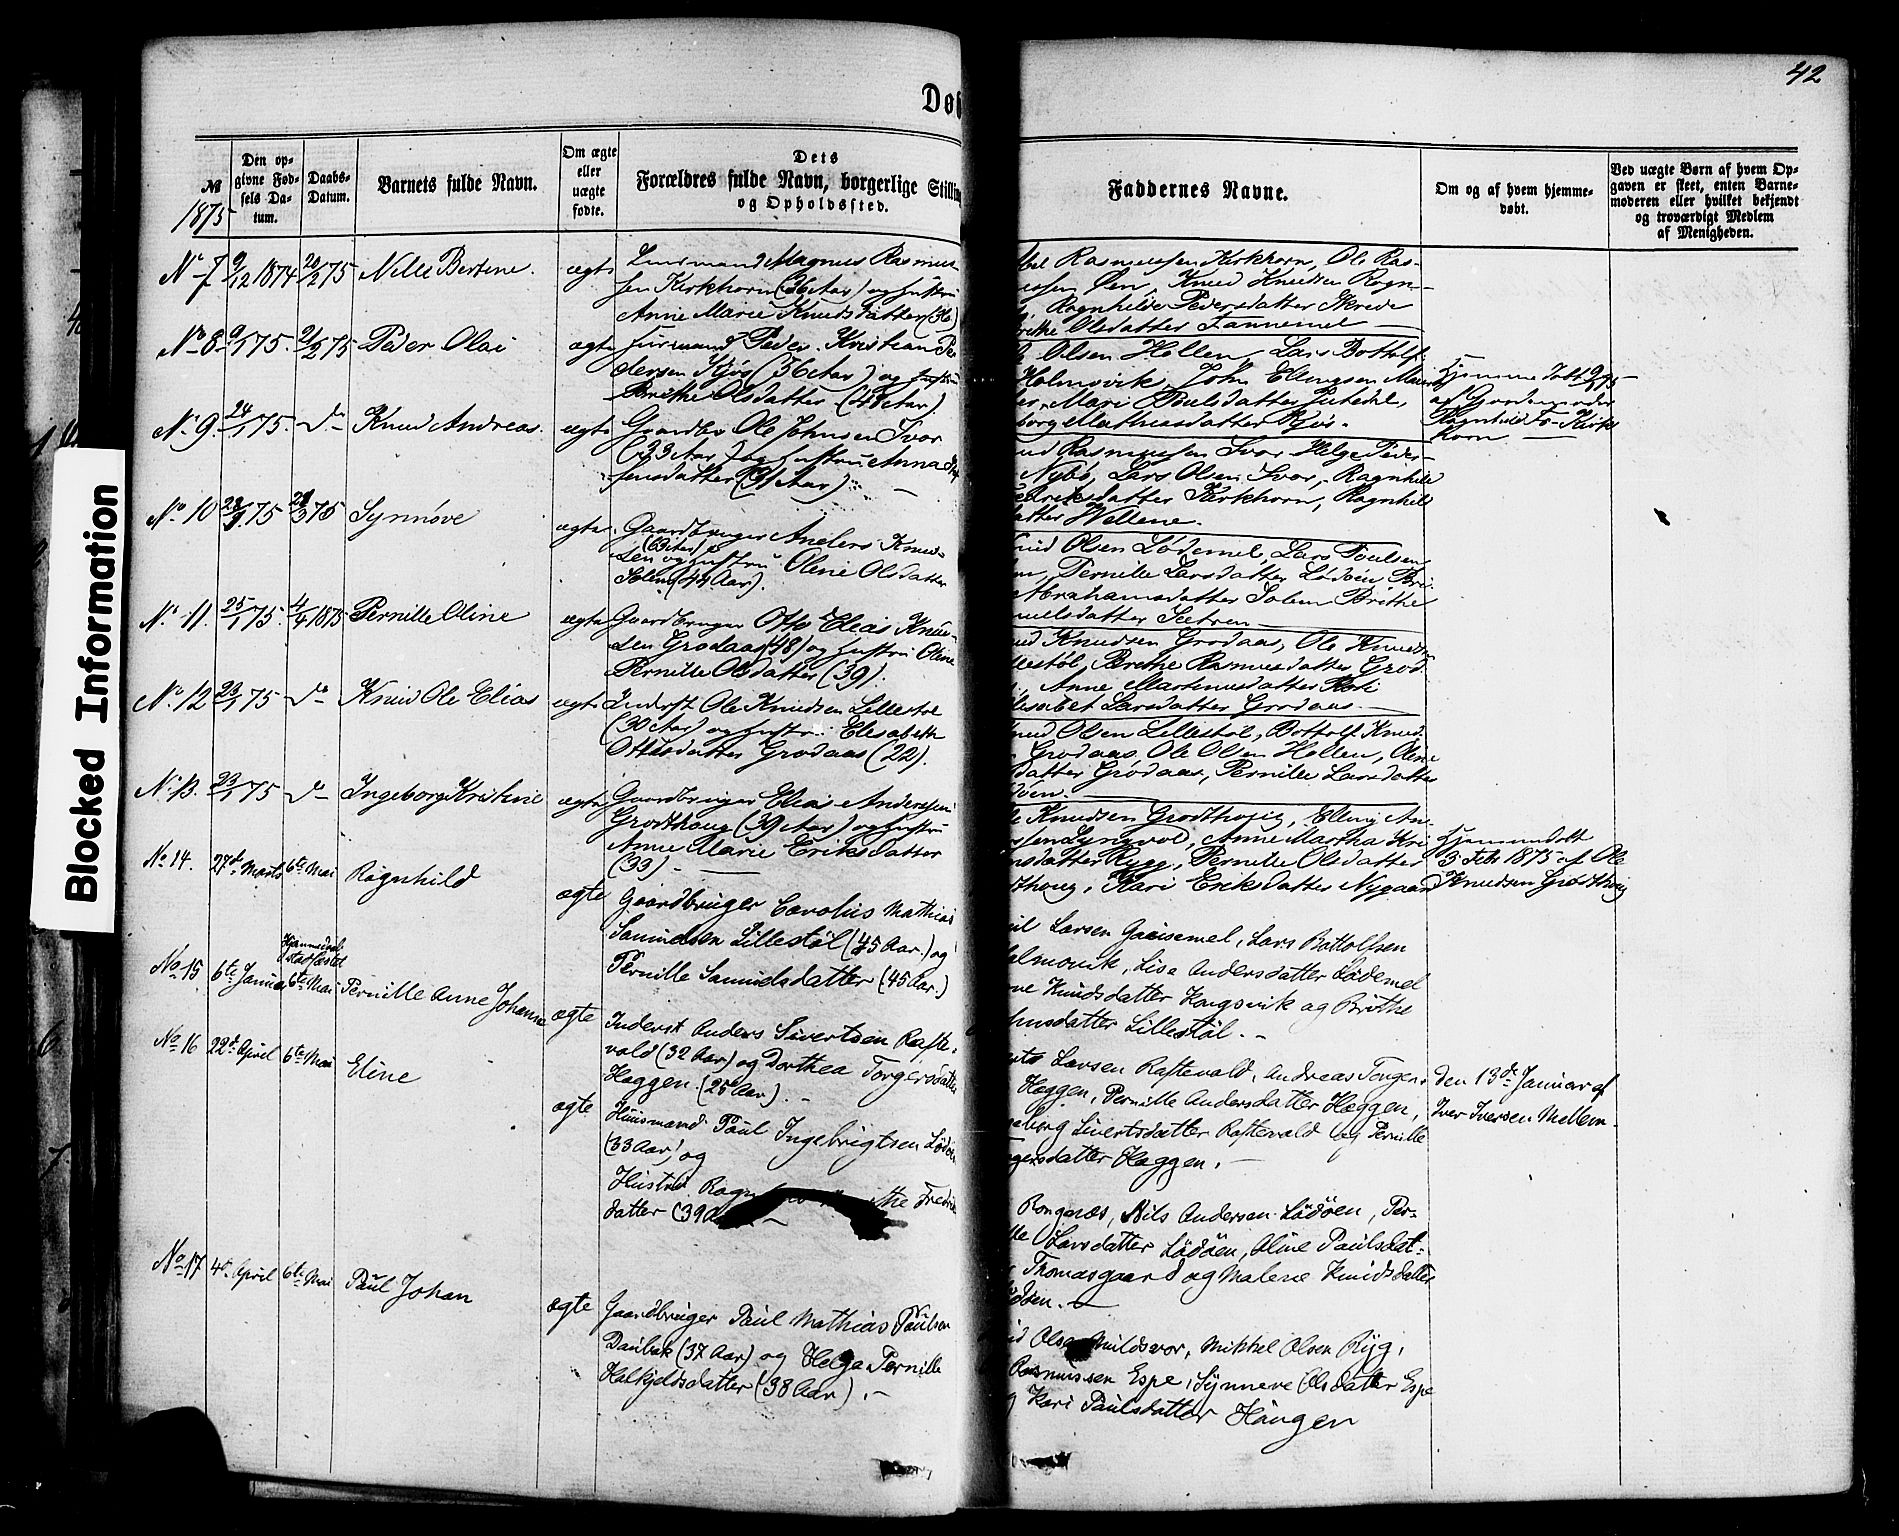 42
Døb
№
1875
Den op-
givne Fød-
sels Da-
tum.
Daabs-
Datum.
Barnets fulde Navn.
Om ægte
eller
uægte
fødte.
Dets
Forældres fulde Navn, borgerlige Stilling
og Opholdssted.
Faddernes Navne.
Om og af hvem hjemme-
døbt.
Ved uægte Børn af hvem Op-
gaven er skeet, enten Barne-
moderen eller hvilket bekjendt
og troværdigt Medlem
af Menigheden.
Blocked Information
No 7 9/12 1874 20/2 75 Nille Bertine. ægte
Magnus Rasmus-
sen Kirkhorn (36 Aar) og Hustru
Anne Marie Knudsdatter (36)
Rasmussen Kirkhorn, Ole Ras-
Øen, Knud Knudsen Rogn-
Ragnhilde Pedersdatter Skrede
Brithe Olsdatter Tannemel
No 8 9/1 75. 21/2 75 Peder Olai ægte
Furmand Peder Kristian Pe-
dersen Kjøs (36 Aar) og Hustru
Brithe Olsdatter (48 Aar)
Olsen Hellen, Lars Bottolf-
Holmøvik, John Ellingsen
Mari Poulsdatter
borg Mathiasdatter Kjøs.
Hjemmedøbt 9/1 75
af Gardemoder
Ragnhild Kirk-
horn
No 9. 24/1 75. do Knud Andreas. ægte
Gaardbr Ole Johnsen Svor
(33 Aar) og Hustru Anna
sensdatter (31 Aar)
Rasmussen Svor, Helge Peder-
Nybø, Lars Olsen Svor, Ragnhild
datter Kirkhorn, Ragnhild
datter Wellene.
No 10 75 75 Synnøve ægte
Gaardbruger Anders Knud-
sen (63 Aar) og Hustru Oline Olsdatter
Solem (44 Aar).
Knud Olsen Lødemel, Lars Poulsen
Pernille Larsdatter Lødøen, Bri-
Abrahamsdatter Solem, Brithe
muelsdatter Sætren
No 11. 25/1 75. 4/4 1875 Pernille Oline ægte
Gaardbruger Otto Elias Knud-
sen Grodaas (48) og Hustru Oline
Pernille Olsdatter (39).
Knudsen Grodaas, Ole Knudsen
Lillestøl, Brithe Rasmusdatter Grod-
Anne Martinusdatter
Elisabet Larsdatter Grodaas.
No 12 23/1 75 do Knud Ole Elias ægte
Inderst Ole Knudsen Lillestøl
(30 Aar) og Hustru Elisabeth
Ottosdatter Grodaas (22).
Knud Olsen Lillestøl, Bottolf Knud-
Grodaas, Ole Olsen Hellen, Oline
datter Grodaas, Pernille Larsdatter
Lødøen.
No 13. 23/1 75 do Ingeborg Kristine ægte
Gaardbruger Elias Andersen
Grodthoug (39 Aar) og Hustru
Anne Marie Eriksdatter
(33)
Ole Knudsen Grodthoug, Elling An-
dersen Lyngvol, Anne Martha Kri-
datter Rygg, Pernille Olsdatter
Grodthoug, Kari Eriksdatter Nygaard
Hjemmedøbt
3 Feb 1875 af Ole
Knudsen Grodthoug
No 14. 27de Marts 6te Mai Ragnhild ægte
Gaardbruger Carolus Mathias
Samuelsen Lillestøl (45 Aar.) og
Pernille Samuelsdatter (45 Aar.)
Larsen Gausemel, Lars Bottolfsen
Holmøvik, Lisa Andersdatter Lødemel
Knudsdatter Kongsvik og Brithe
datter Lillestøl.
No 15 6te Januar Hjemmedøbt stadfæstet 6te Mai Pernille Anne Johanne ægte
Inderst Anders Sivertsen Rafte-
vold (32 Aar) og Dorthea Torgersdatter
Heggen. (25 Aar).
Larsen Raftevold, Andreas Torger-
Heggen, Pernille Andersdatter Heggen,
Ingeborg Sivertsdatter Raftevold og Pernille
Torgersdatter Heggen.
den 13de Januar af
Iver Iversen Mellem.
No 16 22de April 6te Mai Eline ægte
Huusmand Paul Ingebrigtsen Lødøen
(33 Aar) og
Hustru Ragn the Fredrik
datter (39 Aar)
Rongenæs, Nils Andersen Lødøen, Per-
nille Larsdatter Lødøen, Oline Paulsdat-
Thomasgaard og Malene Knudsdatter
Lødøen.
No 17 4de April 6te Mai Paul Johan ægte
Gaardbruger Paul Mathias Paulsen
Raubak (37 Aar) og Helga Pernille
Halkjeldsdatter (38 Aar).
Olsen Muldsvor, Mikkel Olsen Ryg,
Rasmussen Espe, Synneve Olsdatter Espe
og Kari Paulsdatter Haugen